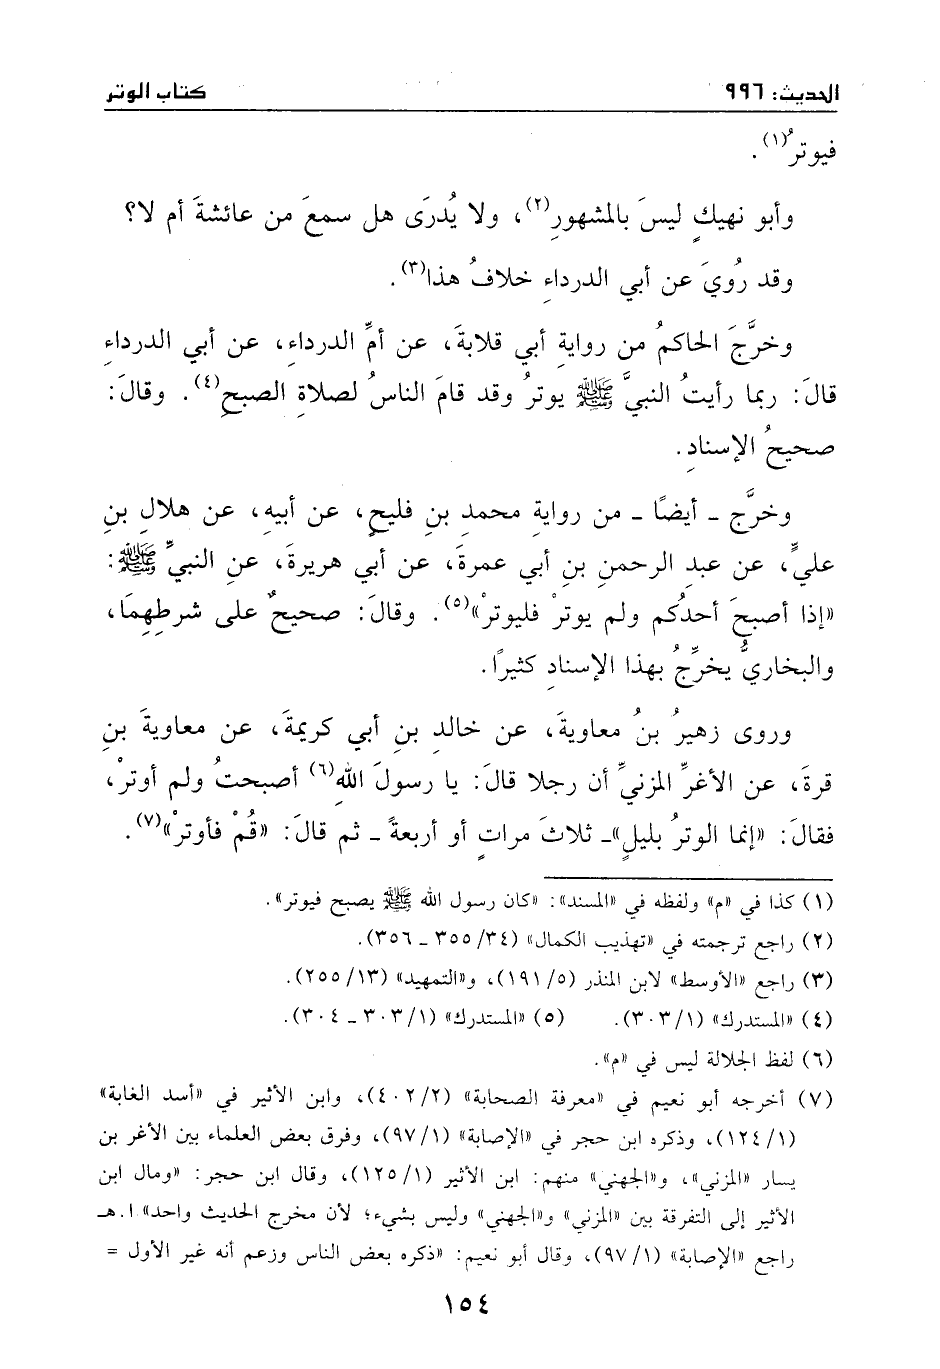 الحديث: ٩٩٦ كتاب الوتر
فيوترُ(١).
وأبو نهيكٍ ليسَ بالمشهورِ(٢)، ولا يُدرَى هل سمعَ من عائشةَ أم لا؟
وقد رُويَ عن أبي الدرداءِ خلافُ هذا(٣).
وخرَّجَ الحاكمُ من روايةِ أبي قلابةَ، عن أمِّ الدرداءِ، عن أبي الدرداءِ
قالَ: ربما رأيتُ النبيَّ ﷺ يوترُ وقد قامَ الناسُ لصلاةِ الصبحِ(٤). وقالَ:
صحيحُ الإسنادِ.
وخرَّج - أيضًا - من روايةِ محمدِ بنِ فليحٍ، عن أبيهِ، عن هلالِ بنِ
عليٍّ، عن عبدِ الرحمنِ بنِ أبي عمرةَ، عن أبي هريرةَ، عنِ النبيِّ ﷺ:
«إذا أصبحَ أحدُكم ولم يوترْ فليوترْ»(٥). وقالَ: صحيحٌ على شرطِهِمَا،
والبخاريُّ يخرِّجُ بهذا الإسنادِ كثيرًا.
وروى زهيرُ بنُ معاويةَ، عن خالدِ بنِ أبي كريمةَ، عن معاويةَ بنِ
قرةَ، عن الأغرِّ المزنيِّ أن رجلا قالَ: يا رسولَ اللهِ(٦) أصبحتُ ولم أوترْ،
فقالَ: «إنما الوترُ بليلٍ»- ثلاثَ مراتٍ أو أربعةً - ثم قالَ: «قُمْ فأوترْ»(٧).
(١) كذا في «م» ولفظه في «المسند»: «كان رسول الله ﷺ يصبح فيوتر».
(٢) راجع ترجمته في «تهذيب الكمال» (٣٤/ ٣٥٥ - ٣٥٦).
(٣) راجع «الأوسط» لابن المنذر (٥/ ١٩١)، و«التمهيد» (١٣/ ٢٥٥).
(٤) «المستدرك» (١/ ٣٠٣). (٥) «المستدرك» (١/ ٣٠٣ - ٣٠٤).
(٦) لفظ الجلالة ليس في «م».
(٧) أخرجه أبو نعيم في «معرفة الصحابة» (٢/ ٤٠٢)، وابن الأثير في «أسد الغابة»
(١/ ١٢٤)، وذكره ابن حجر في «الإصابة» (١/ ٩٧)، وفرق بعض العلماء بين الأغر بن
يسار «المزني»، و«الجهني» منهم: ابن الأثير (١/ ١٢٥)، وقال ابن حجر: «ومال ابن
الأثير إلى التفرقة بين «المزني» و«الجهني» وليس بشيء؛ لأن مخرج الحديث واحد» ا.هـ
راجع «الإصابة» (١/ ٩٧)، وقال أبو نعيم: «ذكره بعض الناس وزعم أنه غير الأول =
١٥٤